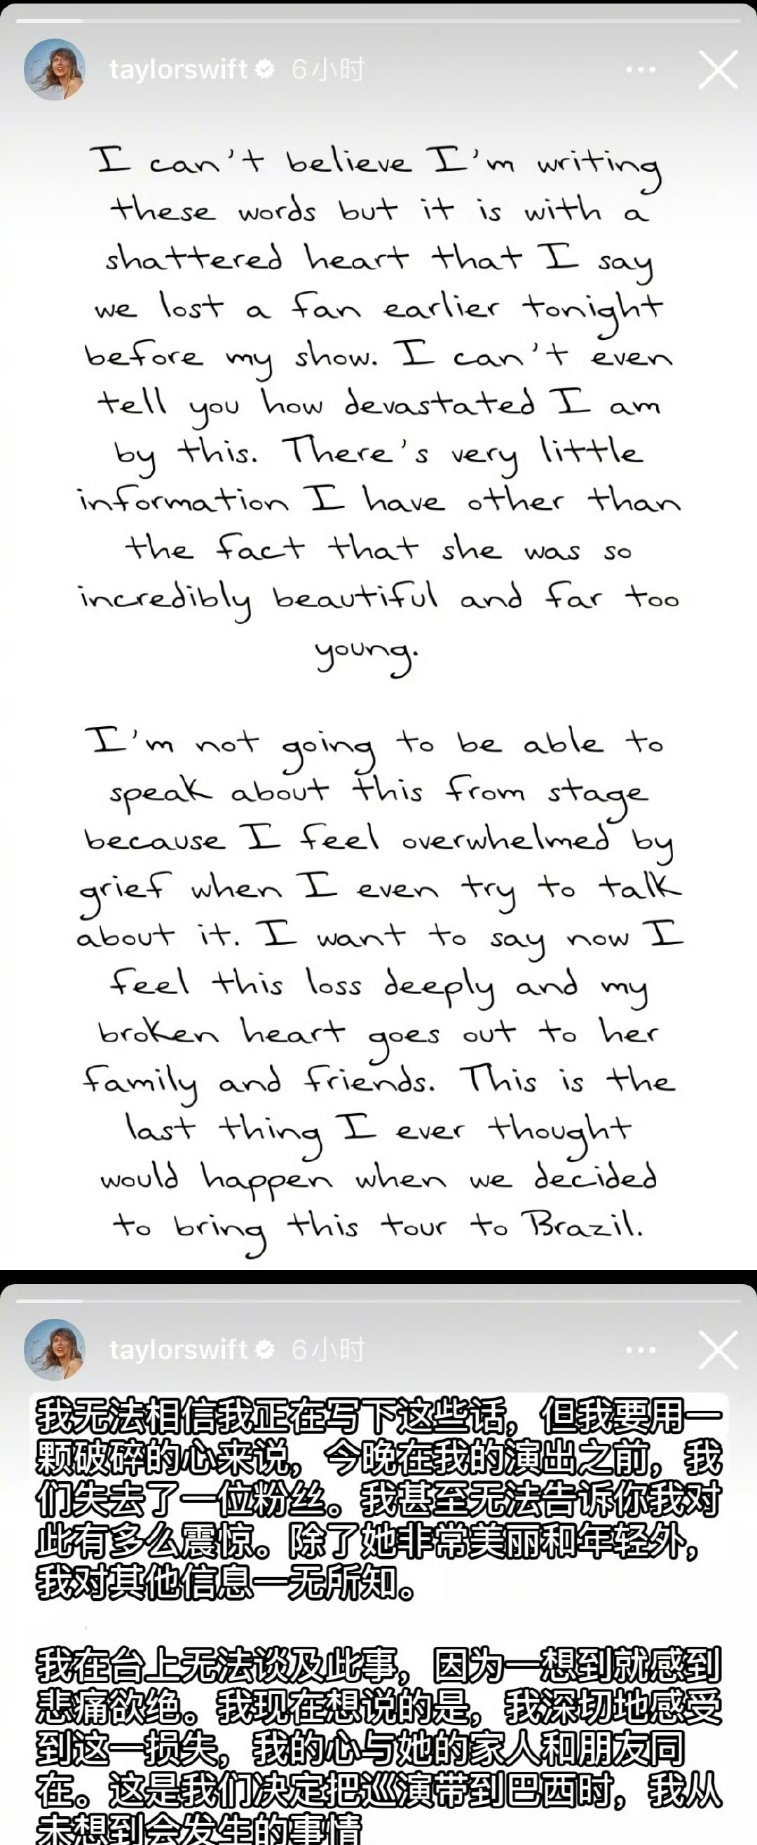 taylorswift 6小时
I can't believe I'm writing
these words but it is with a
shattered heart that I say
we lost a fan earlier tonight
before my show. I can't even
tell you how devastated I am
by this. There's very little
information I have other than
the fact that she was so
incredibly beautiful and far too
young.
I'm not going to be able to
speak about this from stage
because I feel overwhelmed by
grief when I even try to talk
about it. I want to say now I
feel this loss deeply and my
broken heart goes out to her
family and friends. This is the
last thing I ever thought
would happen when we decided
to bring this tour to Brazil.
taylorswift 6小时
我无法相信我正在写下这些话，但我要用一
颗破碎的心来说，今晚在我的演出之前，我
们失去了一位粉丝。我甚至无法告诉你我对
此有多么震惊。除了她非常美丽和年轻外，
我对其他信息一无所知。
我在台上无法谈及此事，因为一想到就感到
悲痛欲绝。我现在想说的是，我深切地感受
到这一损失，我的心与她的家人和朋友同
在。这是我们决定把巡演带到巴西时，我从
未想到会发生的事情